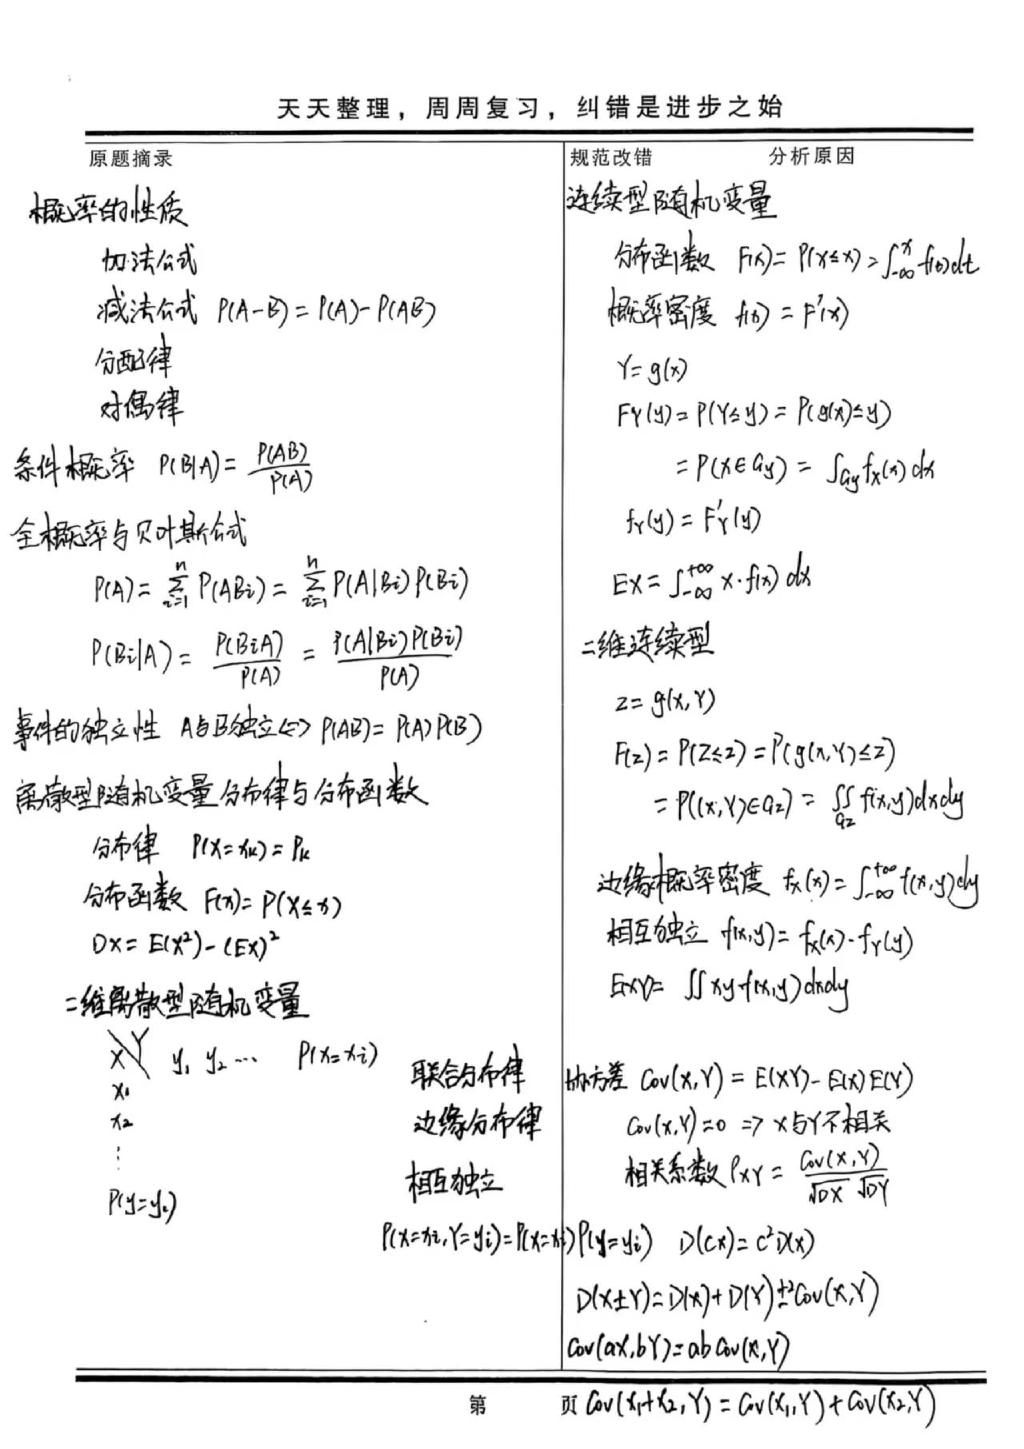 天天整理，周周复习，纠错是进步之始
原题摘录
概率的性质
加法公式
减法公式 P(A-B)=P(A)-P(AB)
分配律
对偶律
条件概率 P(B|A)=P(AB)/P(A)
全概率与贝叶斯公式
P(A)=∑_{i=1}^{n} P(ABi)=∑_{i=1}^{n} P(A|Bi)P(Bi)
P(Bi|A)=P(BiA)/P(A)=P(A|Bi)P(Bi)/P(A)
事件的独立性 A与B独立⇔P(AB)=P(A)P(B)
离散型随机变量分布律与分布函数
分布律 P(X=xk)=Pk
分布函数 F(x)=P(X≤x)
DX=E(X²)-(EX)²
二维离散型随机变量
X\Y y₁ y₂ ⋯ P(X=xi)
x₁
x₂
⋮
P(y=yi)
联合分布律
边缘分布律
相互独立
P(X=xi,Y=yi)=P(X=xi)P(y=yi)
规范改错 分析原因
连续型随机变量
分布函数 F(x)=P(X≤x)=∫_{-∞}^{x} f(t)dt
概率密度 f(x)=F'(x)
Y=g(x)
FY(y)=P(Y≤y)=P(g(x)≤y)
=P(X∈Gy)=∫_{Gy} fX(x)dx
fY(y)=F'Y(y)
EX=∫_{-∞}^{+∞} x·f(x)dx
二维连续型
Z=g(X,Y)
F(z)=P(Z≤z)=P(g(x,Y)≤z)
=P((x,Y)∈Gz)=∬_{Gz} f(x,y)dxdy
边缘概率密度 fX(x)=∫_{-∞}^{+∞} f(x,y)dy
相互独立 f(x,y)=fX(x)·fY(y)
EXY=∬xyf(x,y)dxdy
协方差 Cov(X,Y)=E(XY)-E(X)E(Y)
Cov(X,Y)=0 ⇒ X与Y不相关
相关系数 ρXY=Cov(X,Y)/√DX √DY
D(CX)=C²D(X)
D(X±Y)=D(X)+D(Y)±2Cov(X,Y)
Cov(aX,bY)=abCov(X,Y)
第 页 Cov(X₁+X₂,Y)=Cov(X₁,Y)+Cov(X₂,Y)